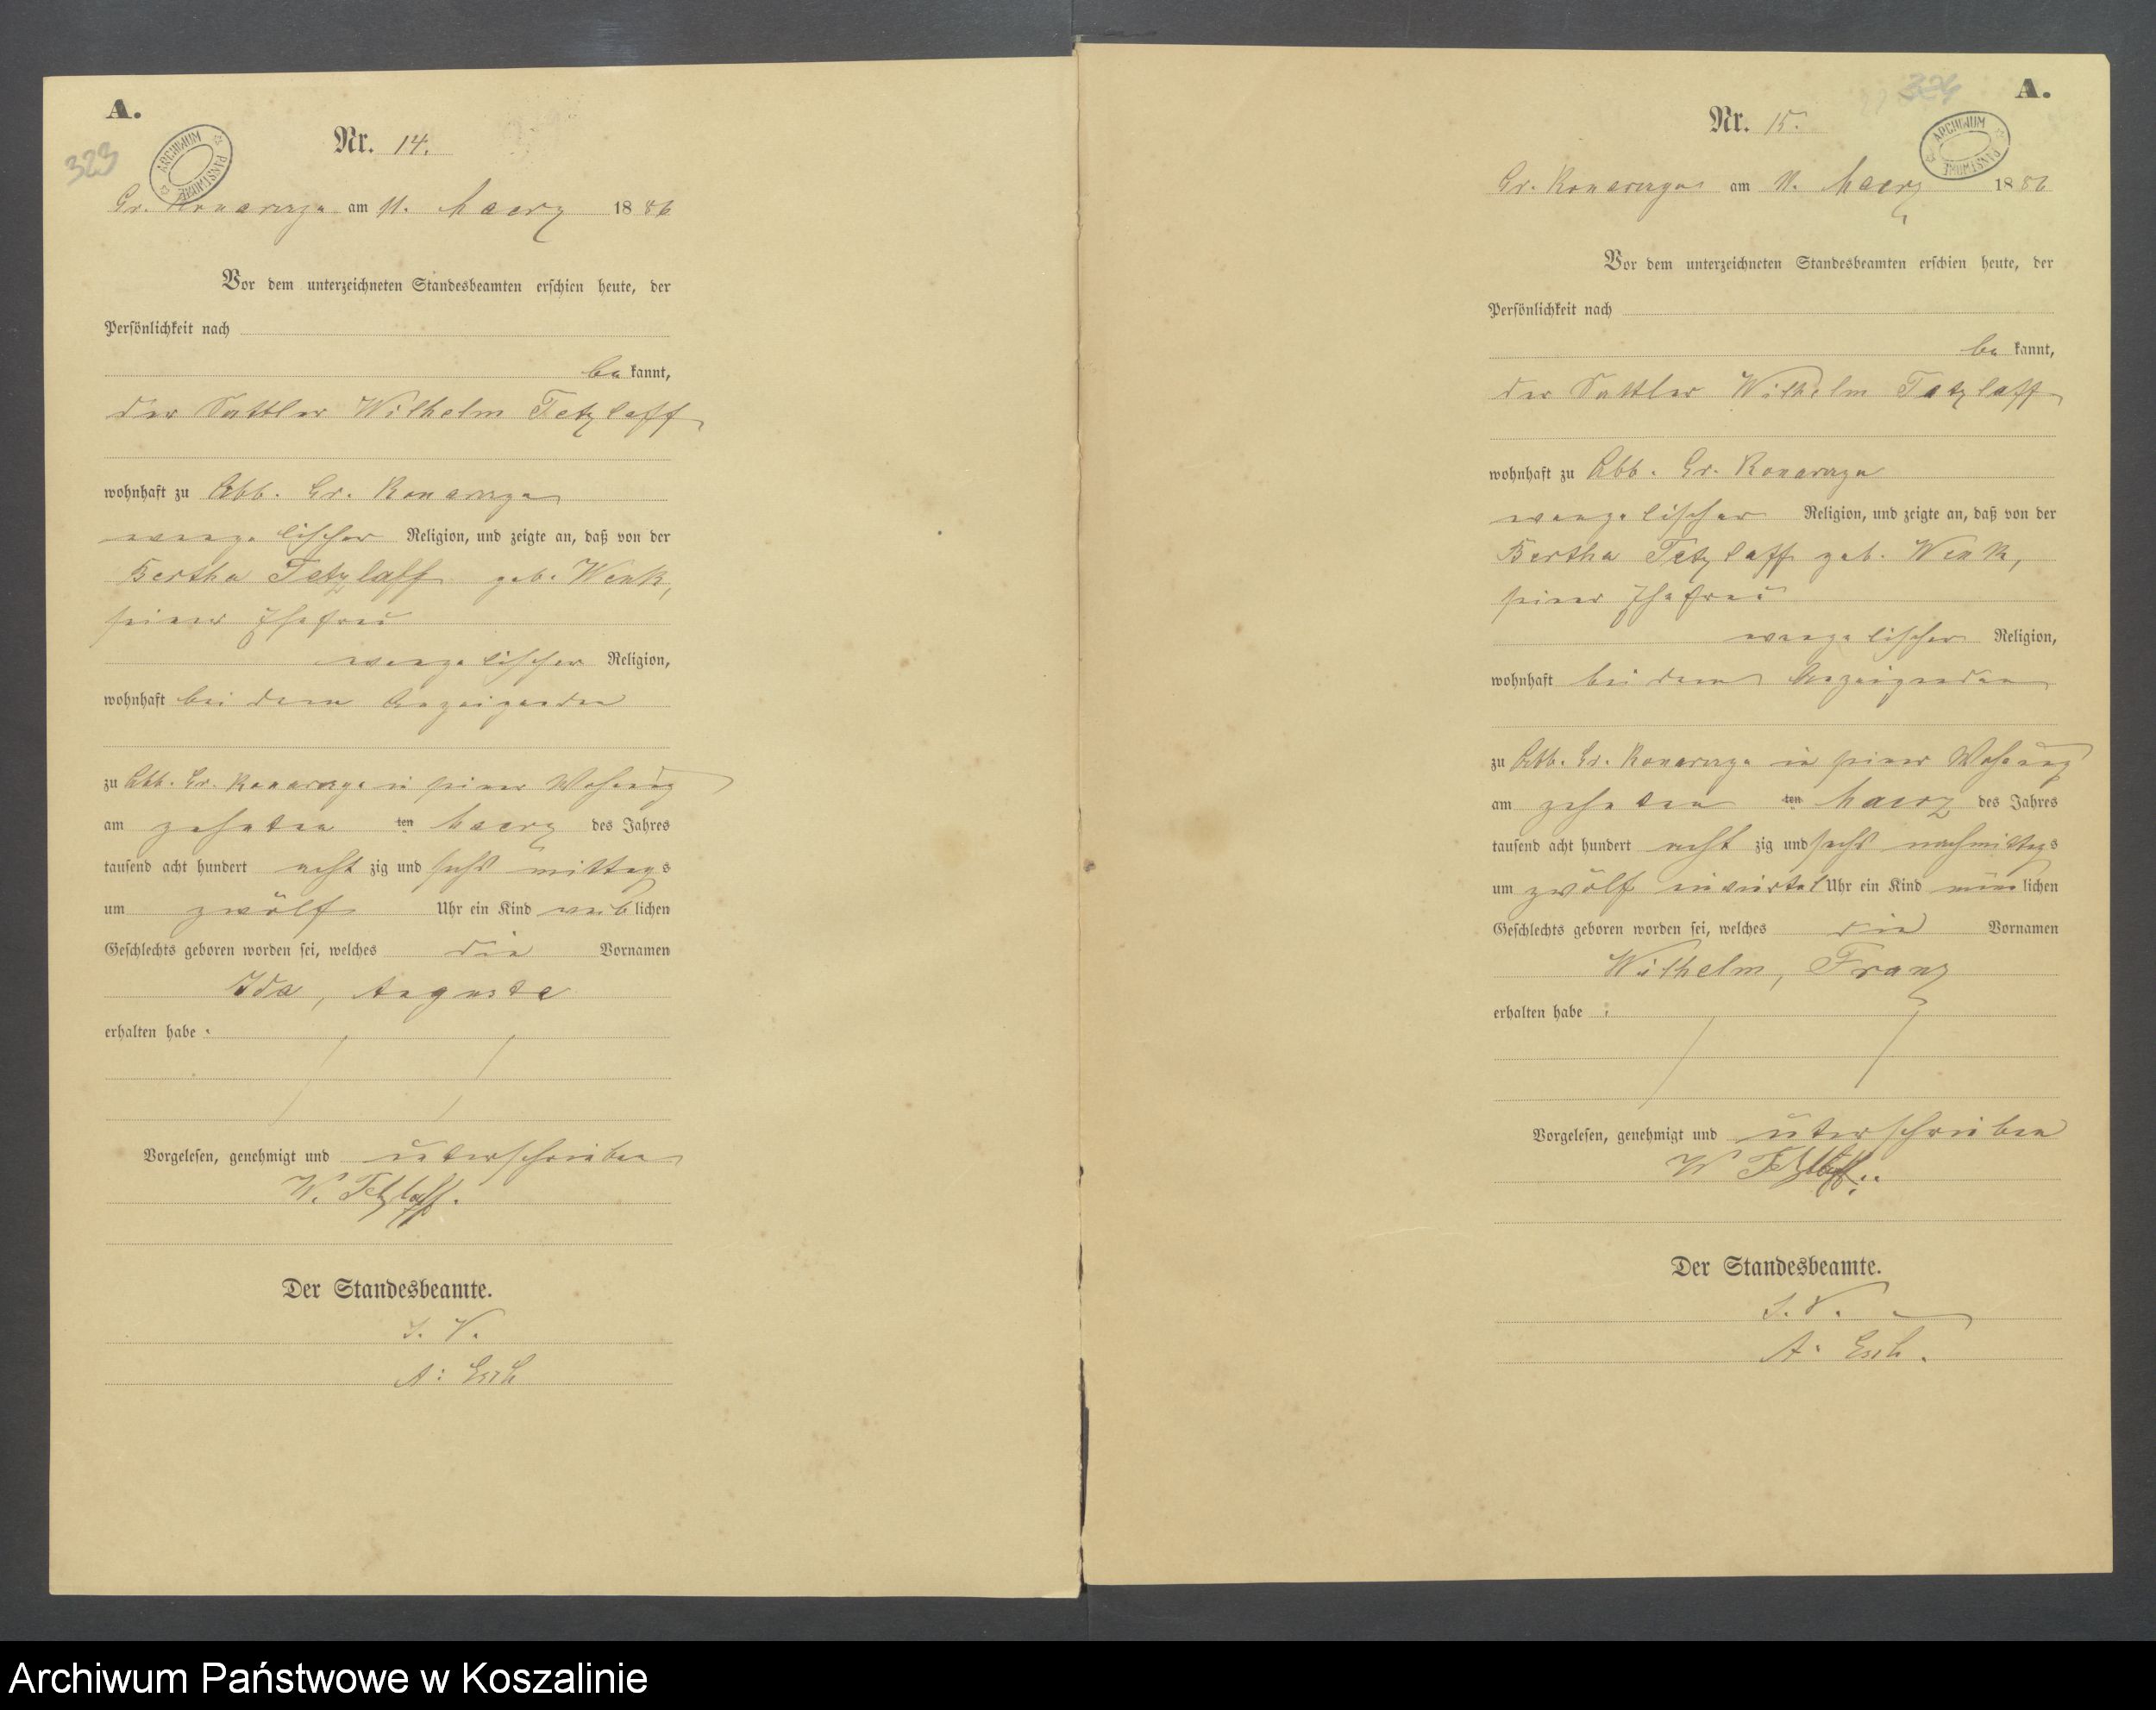 A.
323
ARCHIWUM PAŃSTWOWE
Nr. 14.
Gr. Konarczyn am 11. Maerz 1886
Vor dem unterzeichneten Standesbeamten erschien heute, der
Persönlichkeit nach
be kannt,
der Sattler Wilhelm Tetzlaff
wohnhaft zu Abb. Gr. Konarczyn
evangelischer Religion, und zeigte an, daß von der
Bertha Tetzlaff geb. Wenk,
seiner Ehefrau
evangelischer Religion,
wohnhaft bei dem Anzeigenden
zu Abb. Gr. Konarczyn in seiner Wohnung
am zehnten ten Maerz des Jahres
tausend acht hundert acht zig und sechs mittags
um zwölf Uhr ein Kind weiblichen
Geschlechts geboren worden sei, welches die Vornamen
Ida, Auguste
erhalten habe.
Vorgelesen, genehmigt und unterschrieben
W. Tetzlaff.
Der Standesbeamte.
I. V.
A: Esch
A.
324
ARCHIWUM PAŃSTWOWE
Nr. 15.
Gr. Konarczyn am 11. Maerz 1886
Vor dem unterzeichneten Standesbeamten erschien heute, der
Persönlichkeit nach
be kannt,
der Sattler Wilhelm Tetzlaff
wohnhaft zu Abb. Gr. Konarczyn
evangelischer Religion, und zeigte an, daß von der
Bertha Tetzlaff geb. Wenk,
seiner Ehefrau
evangelischer Religion,
wohnhaft bei dem Anzeigenden
zu Abb. Gr. Konarczyn in seiner Wohnung
am zehnten ten Maerz des Jahres
tausend acht hundert acht zig und sechs nachmittags
um zwölf einviertel Uhr ein Kind männlichen
Geschlechts geboren worden sei, welches die Vornamen
Wilhelm, Franz
erhalten habe :
Vorgelesen, genehmigt und unterschrieben
W Tetzlaff.
Der Standesbeamte.
I. V.
A: Esch.
Archiwum Państwowe w Koszalinie